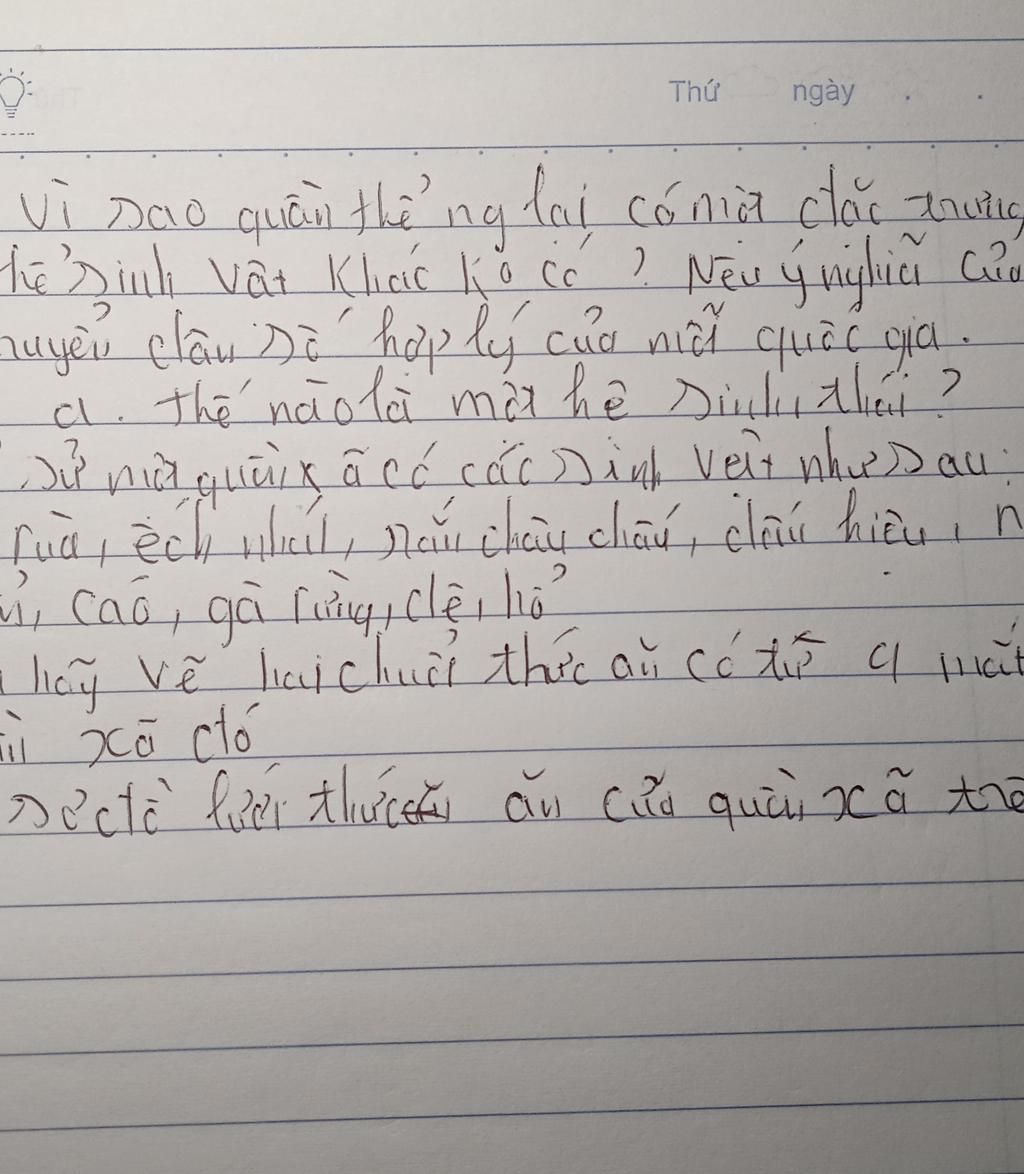 Thứ ngày . .
Vì sao quần thể ng lại có một đặc trưng
thể sinh vật khác ko có ? Nêu ý nghĩa của
dân số hợp lý của mỗi quốc gia.
a. thế nào là một hệ sinh thái ?
sử một quần xã có các sinh vật như sau:
rùa, ếch nhái, rắn châu chấu, diều hiệu,
cáo, gà rừng, dê, hổ
hãy vẽ hai chuỗi thức ăn có từ 4 mắt
xã đó
sơ đồ lưới thức ăn của quần xã